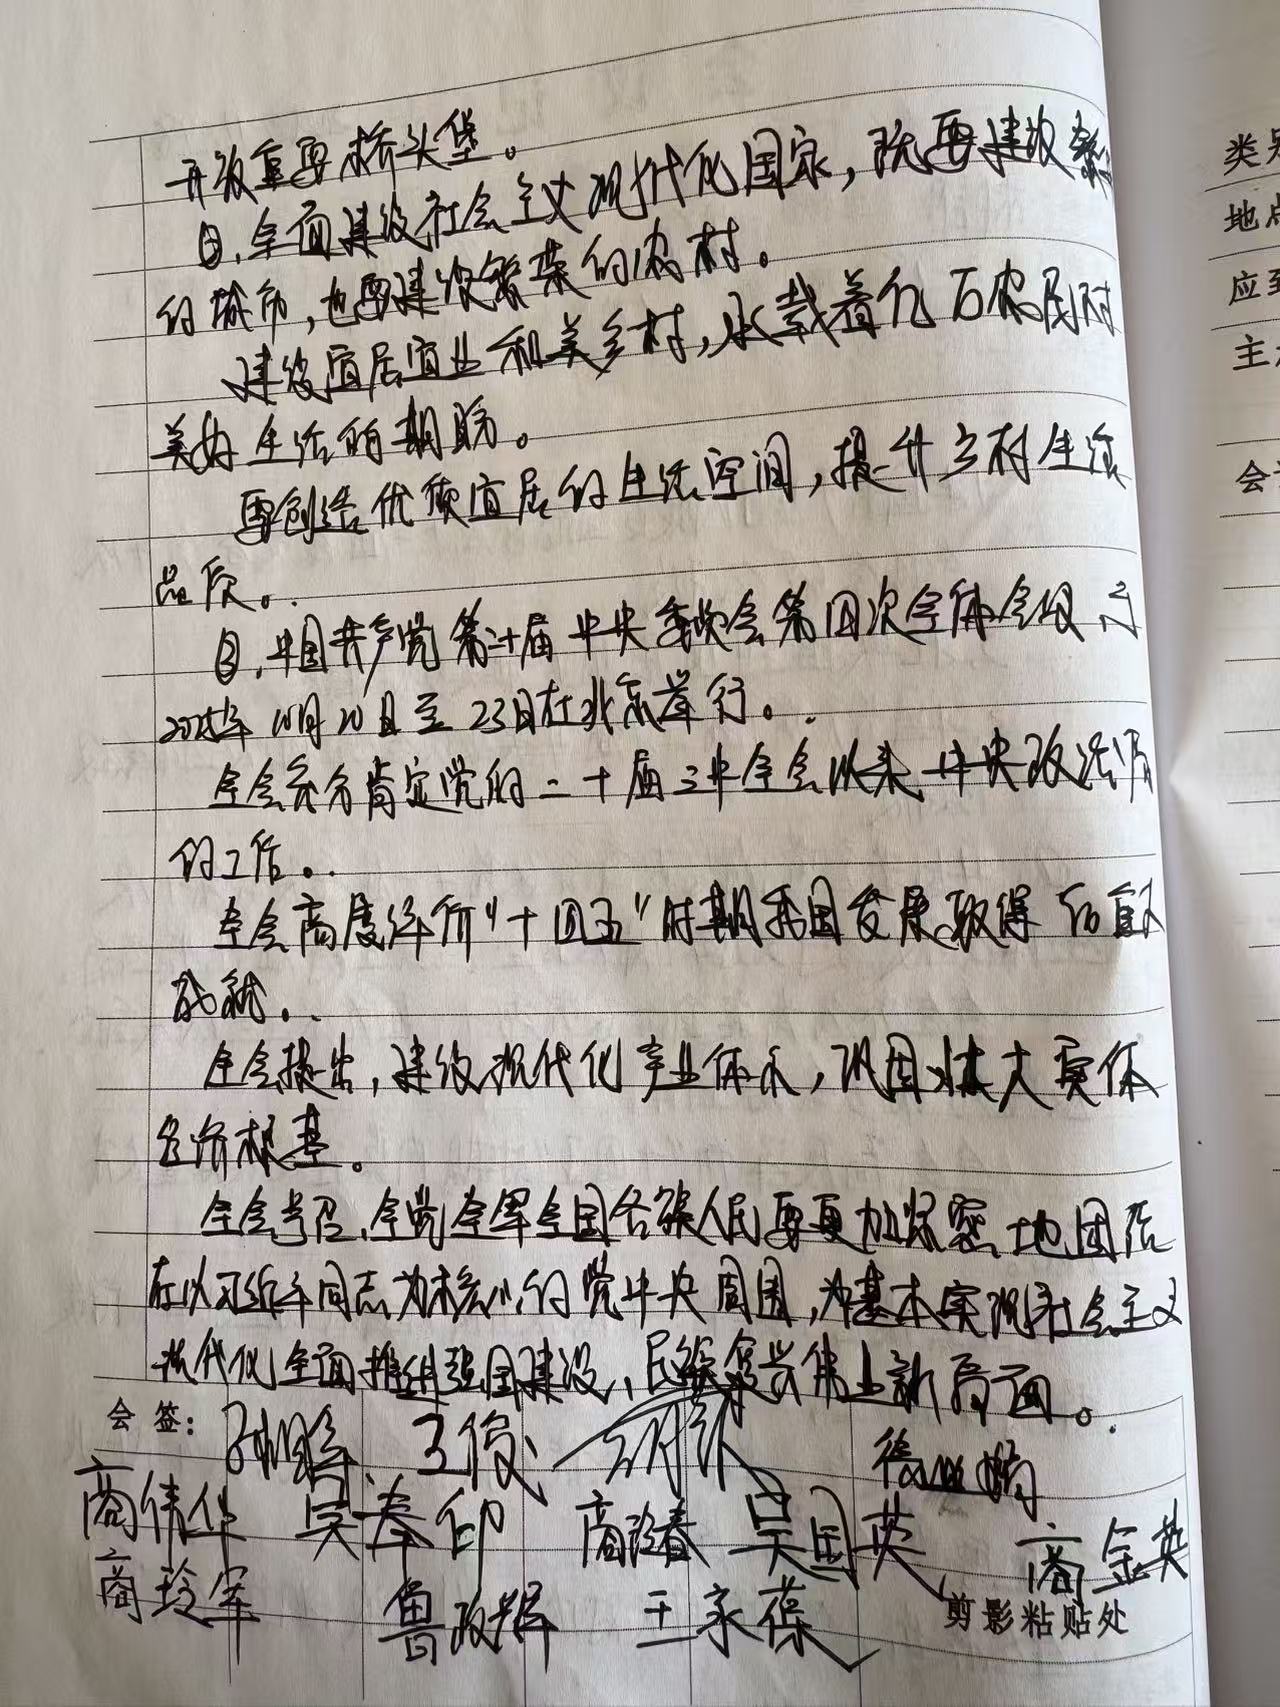 开放重要桥头堡。
目,全面建设社会主义现代化国家,既要建设繁
的城市,也要建设繁荣的农村。
建设宜居宜业和美乡村,承载着亿万农民对
美好生活的期盼。
要创造优质宜居的生活空间,提升乡村生活
品质。
目,中国共产党第二十届中央委员会第四次全体会议于
2025年10月20日至23日在北京举行。
全会充分肯定党的二十届三中全会以来中央政治局
的工作。
全会高度评价“十四五”时期我国发展取得的重大
成就。
全会提出,建设现代化产业体系,巩固壮大实体
经济根基。
全会号召,全党全军全国各族人民要更加紧密地团结
在以习近平同志为核心的党中央周围,为基本实现社会主义
现代化全面推进强国建设、民族复兴伟业新局面。
会签: 王俊
商伟华 吴奉印 商玲春 吴国英 商金英
商玲军 鲁政辉 王家葆
剪影粘贴处
类
地点
应到
主
会